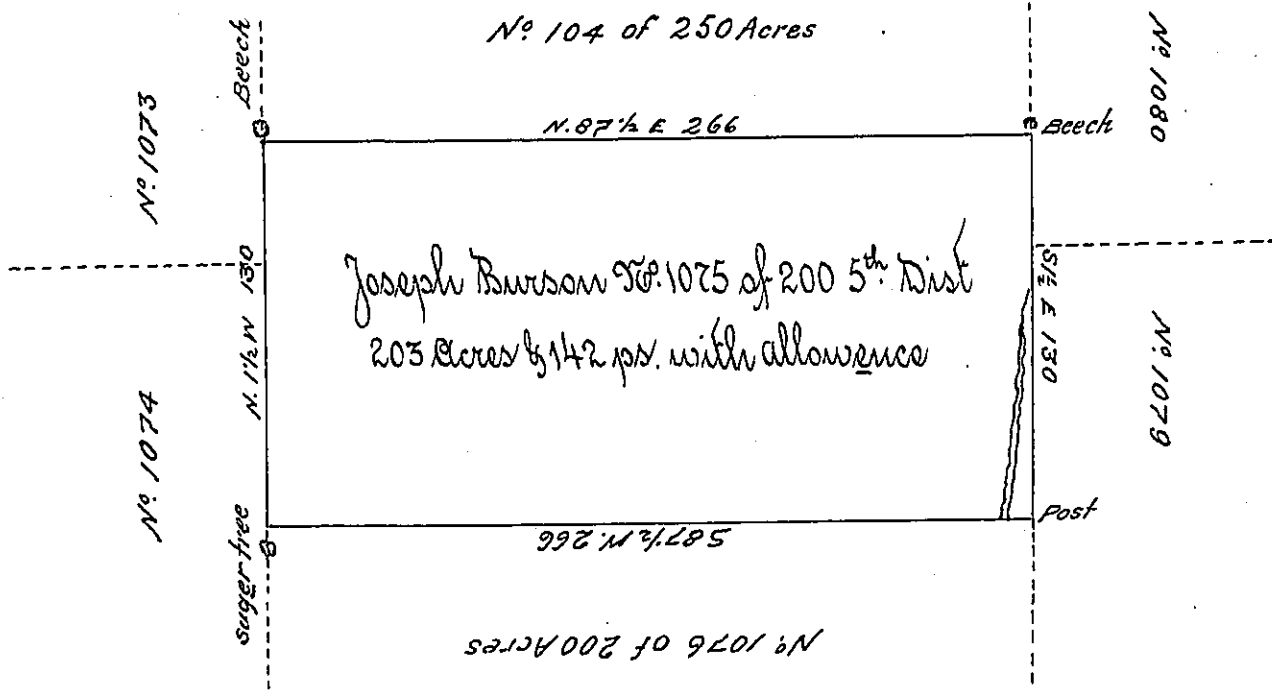 Nº 104 of 250 Acres
Beech
Nº 1073
N. 87½ E 266
Beech
Nº 1080
N. 1½ W 130
S 1½ E 130
Joseph Burson Nº. 1075 of 200 5th Dist
203 Acres & 142 ps. with allowence
Nº 1074
Nº 1079
suger tree
S 87½ W. 266
Post
Nº 1076 of 200 Acres